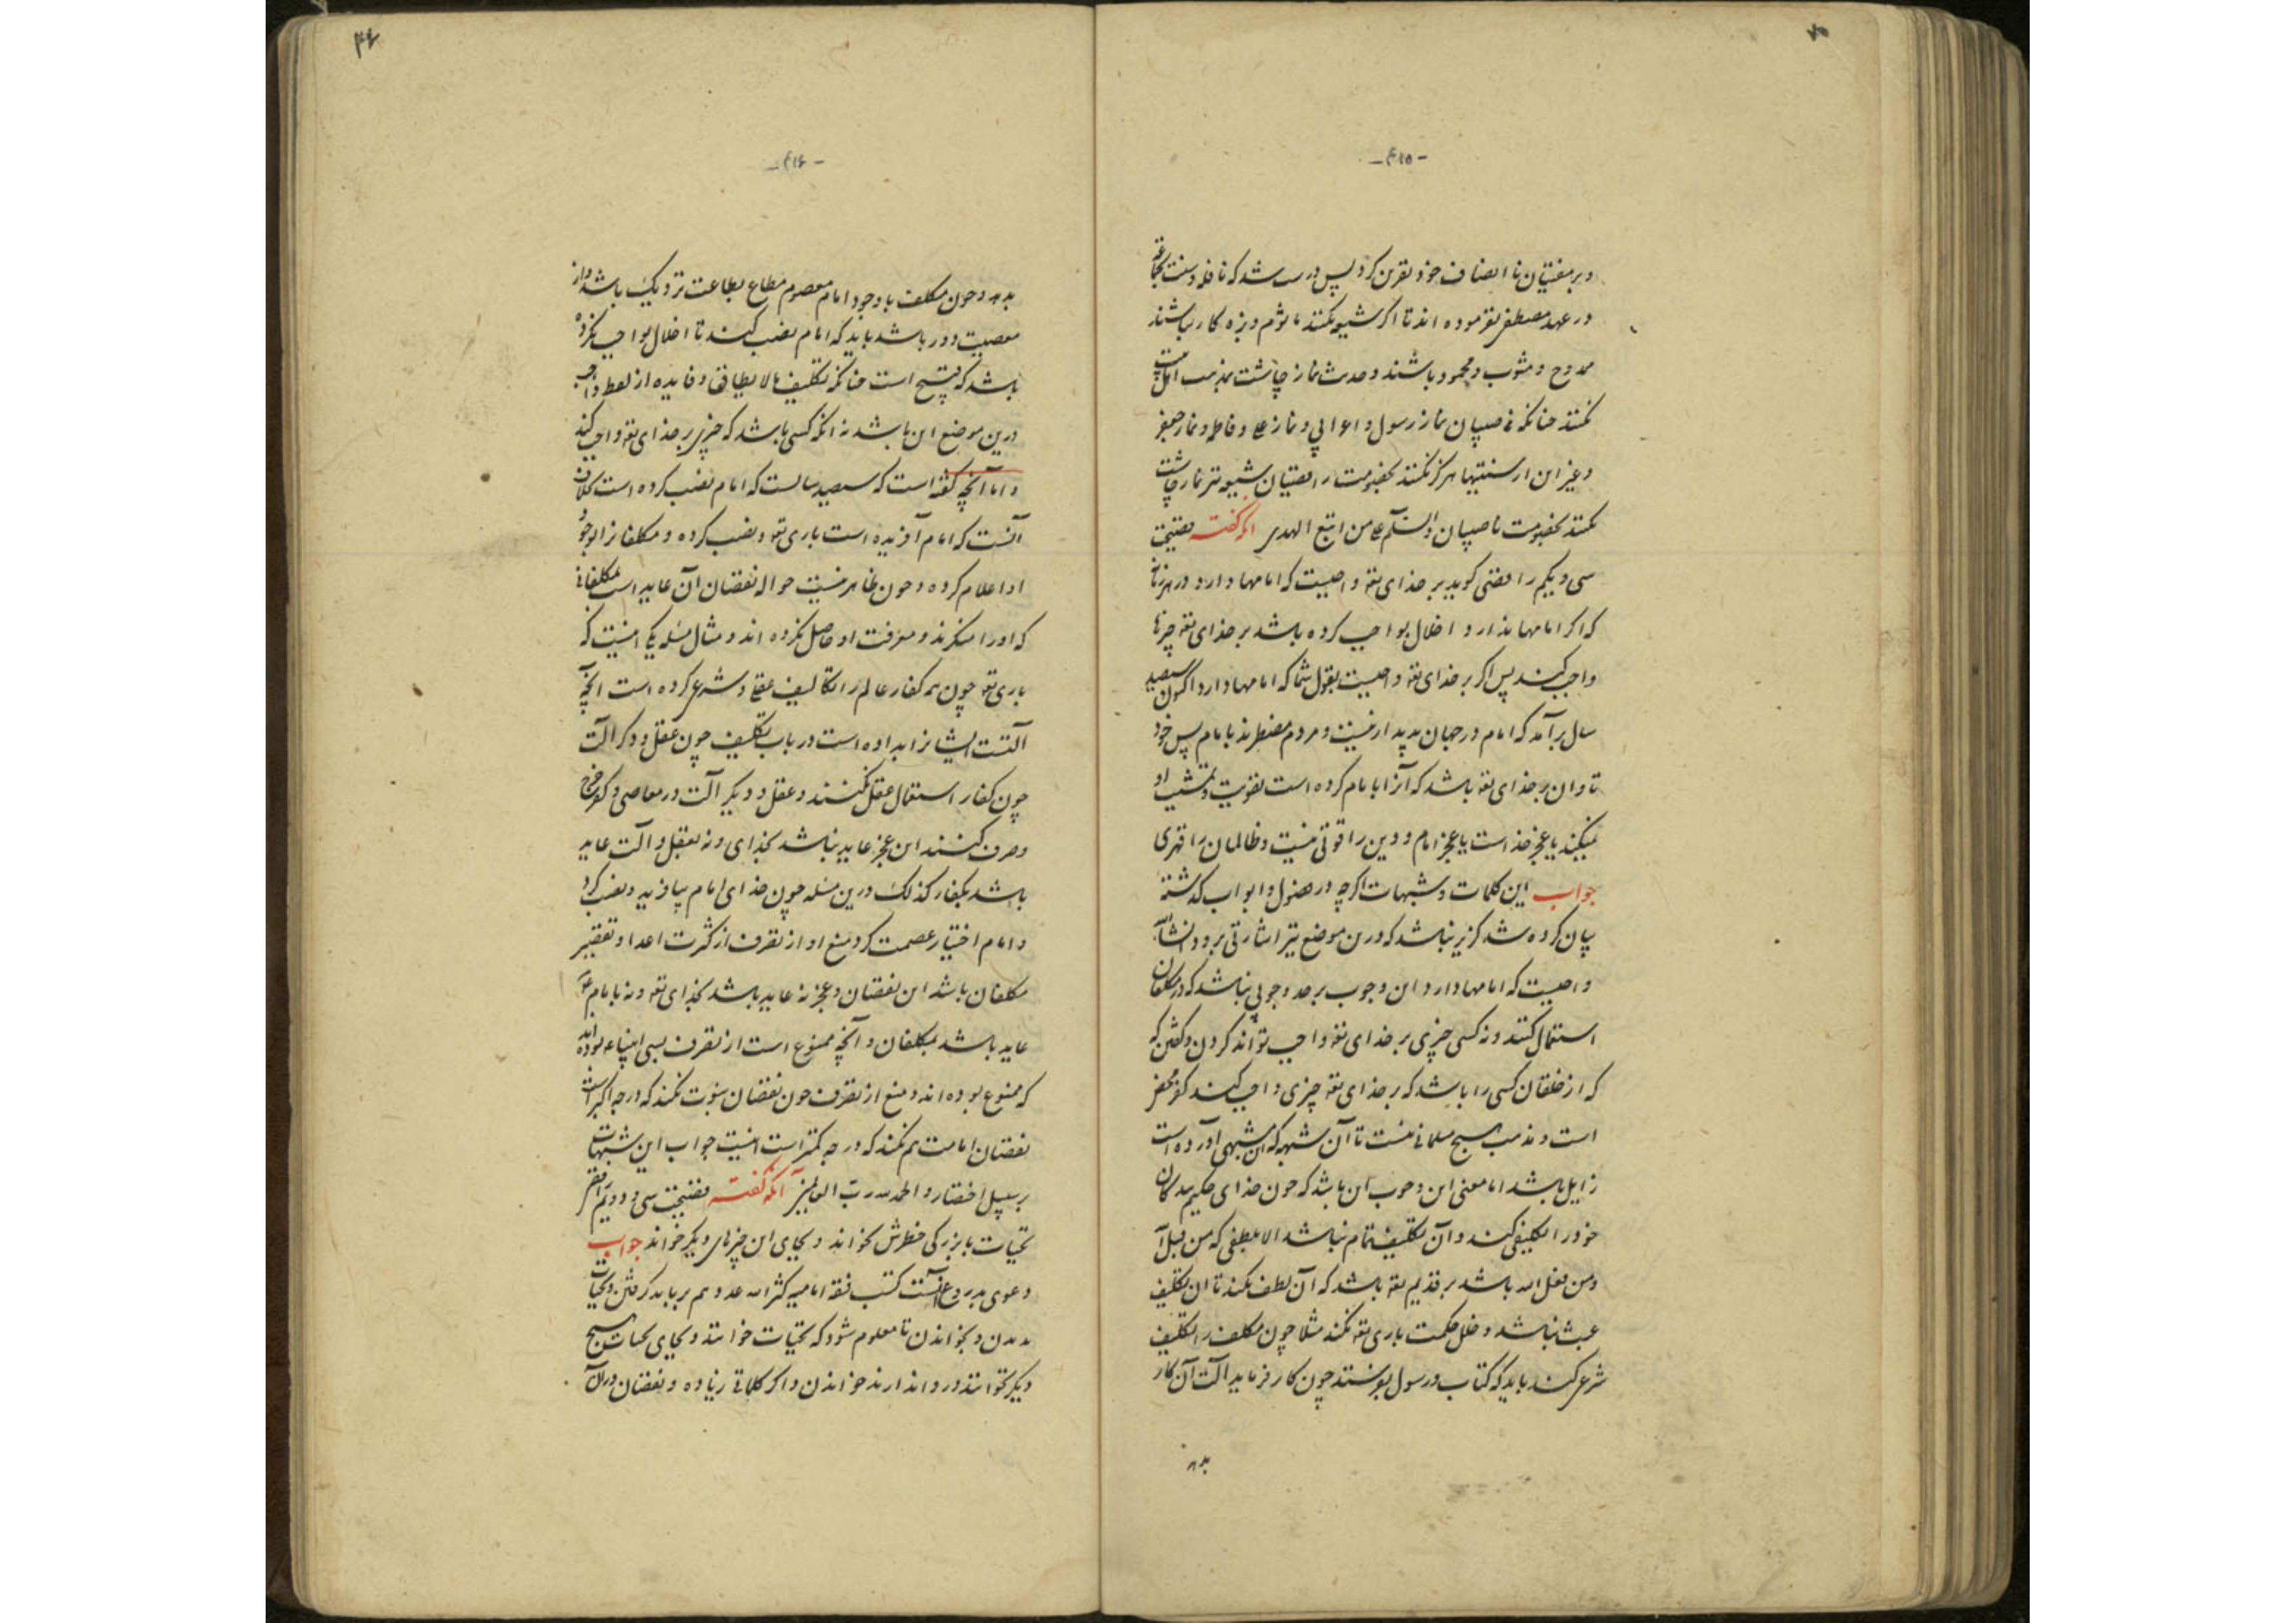 -۴۱۵-
و بر مفتیان نا انصاف خود نفرین کرد پس درست شد که نافله و سنت بجماعة
در عهد مصطفی نفرموده اند تا اگر شیعه نکنند مأثوم و بزه کار نباشند
ممدوح و مثوب و محمود باشند و حدیث نماز چاشت بمذهب اهل بیت
نکنند چنانکه ناصبیان نماز رسول و اعرابی و نماز علی و فاطمه و نماز جعفر
و غیر این از سنتیها هرگز نکنند بخصومت رافضیان شیعه نیز نماز چاشت
نکنند بخصومت ناصبیان و السلام علی من اتبع الهدی آنکه گفته فضیحت
سی و یکم رافضی گوید بر خدای تعه واجبست که امامها دارد در هر زمانی
که اگر امامها ندارد اخلال بواجب کرده باشد بر خدای تعه چیزها
واجب کنند پس اگر بر خدای تعه واجبست بقول شما که امامها دارد اکنون سیصد
سال برآمد که امام در جهان پدیدار نیست و مردم مضطرند بامام پس خود
تاوان بر خدای تعه باشد که آنرا بامام کرده است تقویت و تمشیت او
نمیکند یا عجز خداست یا عجز امام و دین را قوتی نیست و ظالمان را قهری
جواب این کلمات و شبهات اگرچه در فصول و ابواب گذشته
بیان کرده شد گزیر نباشد که درین موضع نیز اشارتی برود انشاءالله
واجبست که امامها دارد این وجوب بر حد وجوبی نباشد که در مکلفان
استعمال کنند و نه کسی چیزی بر خدای تعه واجب تواند کردن و گفتن که
که از خلقان کسی را باشد که بر خدای تعه چیزی واجب کند کفر محض
است و مذهب هیچ مسلمانی نیست تا آن شبهه که این مشبهی آورده است
زایل باشد اما معنی این وجوب آن باشد که چون خدای حکیم بندگان
خود را تکلیفی کند و آن تکلیف تمام نباشد الا بلطفی که من قبل الله
و من فعل الله باشد بر قدیم تعه باشد که آن لطف بکند تا آن تکلیف
عبث نباشد و خلل حکمت باری تعه نکند مثلا چون مکلف را تکلیف
شرع کند باید که کتاب و رسول بفرستد چون کار فرماید آلت آن کار
بدهد
-۴۱۶-
بدهد و چون مکلف با وجود امام معصوم مطاع بطاعت نزدیک باشد و از
معصیت دور باشد باید که امام نصب کند تا اخلال بواجب نکرده
باشد که قبیح است چنانکه تکلیف مالا یطاق و فایده از لفظ واجب
درین موضع این باشد نه آنکه کسی باشد که چیزی بر خدای تعه واجب کند
و اما آنچه گفته است که سیصد سالست که امام نصب کرده است بخلاف
آنست که امام آفریده است باری تعه و نصب کرده و مکلفانرا بوجود
او اعلام کرده و چون ظاهر نیست حواله نقصان آن عاید است بمکلفانی
که او را منکرند و معرفت او حاصل نکرده اند و مثال مسئله یکی اینست که
باری تعه چون همه کفار عالم را تکالیف عقلی و شرعی کرده است آنچه
آلتست ایشانرا بداده است در باب تکلیف چون عقل و دگر آلت
چون کفار استعمال عقل نکنند و عقل و دیگر آلت در معاصی و کفر خرج
و صرف کنند این عجز عاید نباشد بخدای و نه بعقل و آلت عاید
باشد بکفار کذلک درین مسئله چون خدای امام بیافرید و نصب کرد
و امام اختیار عصمت کرد منع او از تصرف از کثرت اعدا و تقصیر
مکلفان باشد این نقصان و عجز نه عاید باشد بخدای تعه و نه بامام عم
عاید باشد بمکلفان و آنچه ممنوع است از تصرف بسی انبیاء بوده اند
که ممنوع بوده اند و منع از تصرف چون نقصان نبوت نکند که درجه اکبر است
نقصان امامت هم نکند که درجه کمتر است اینست جواب این شبهات
بر سبیل اختصار و الحمدلله رب العالمین آنکه گفته فضیحت سی و دویم رافضی
تحیات بابزرگی خطرش نخواند و بجای این چیزهای دیگر خواند جواب
دعوی بدروغ آنست کتب فقه امامیه کثر الله عددهم بر باید گرفتن و تحیات
بدیدن و بخواندن تا معلوم شود که تحیات خوانند و بجای تحیات هیچ
دیگر نخوانند و روا ندارند خواندن و اگر کلماتی زیاده و نقصان در آن